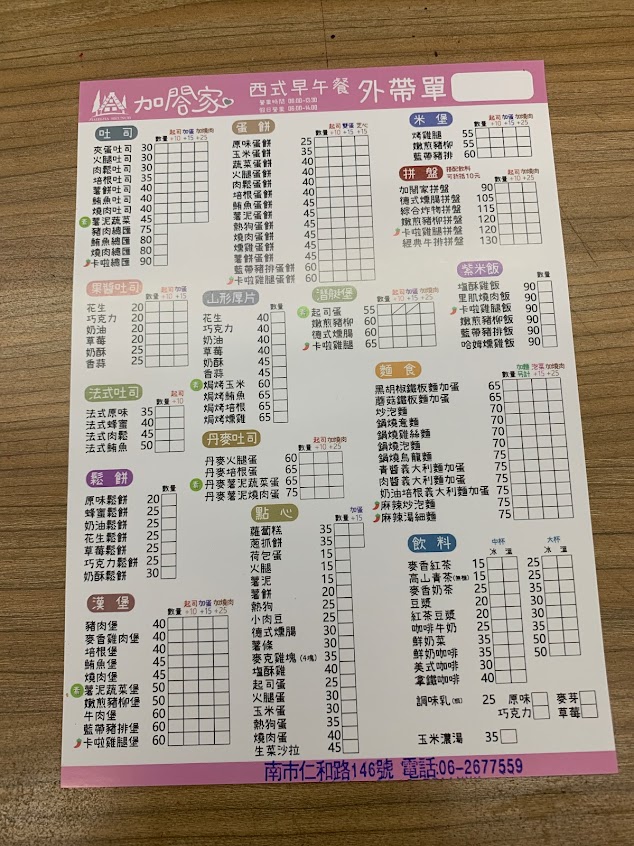 加閤家 西式早午餐 外帶單
營業時間 06:00-13:30
假日營業 06:00-14:00
吐司
數量 起司+10 加蛋+15 加燒肉+25
夾蛋吐司 30
火腿吐司 30
肉鬆吐司 30
培根吐司 35
薯餅吐司 40
鮪魚吐司 40
燒肉吐司 40
素 薯泥蔬菜 45
豬肉總匯 75
鮪魚總匯 80
燒肉總匯 80
卡啦總匯 90
果醬吐司
數量 起司+10 加蛋+15
花生 20
巧克力 20
奶油 20
草莓 20
奶酥 25
香蒜 25
法式吐司
起司+10
法式原味 35
法式蜂蜜 40
法式肉鬆 45
法式鮪魚 50
鬆餅
數量
原味鬆餅 20
蜂蜜鬆餅 25
奶油鬆餅 25
花生鬆餅 25
草莓鬆餅 25
巧克力鬆餅 25
奶酥鬆餅 30
漢堡
數量 起司+10 加蛋+15 加燒肉+25
豬肉堡 40
麥香雞肉堡 40
培根堡 40
鮪魚堡 50
燒肉堡 50
素 薯泥蔬菜堡 50
嫩煎豬柳堡 50
牛肉堡 60
藍帶豬排堡 60
卡啦雞腿堡 60
蛋餅
數量 起司+10 雙蛋+15 芝心+15
原味蛋餅 25
玉米蛋餅 35
蔬菜蛋餅 40
火腿蛋餅 40
肉鬆蛋餅 40
培根蛋餅 40
鮪魚蛋餅 45
薯泥蛋餅 45
熱狗蛋餅 45
燒肉蛋餅 45
燻雞蛋餅 45
薯餅蛋餅 45
藍帶豬排蛋餅 60
卡啦雞腿蛋餅 60
山形厚片
數量
花生 40
巧克力 40
奶油 40
草莓 40
奶酥 45
香蒜 45
素 焗烤玉米 60
焗烤鮪魚 65
焗烤培根 65
焗烤燻雞 65
丹麥吐司
數量 起司+10 加燒肉+25
丹麥火腿蛋 60
丹麥培根蛋 65
素 丹麥薯泥蔬菜蛋 65
丹麥薯泥燒肉蛋 75
點心
數量 加蛋+15
蘿蔔糕 35
蔥抓餅 30
荷包蛋 15
火腿 15
薯泥 15
薯餅 20
熱狗 25
小肉豆 25
德式燻腸 30
薯條 30
麥克雞塊(4塊) 35
塩酥雞 40
起司蛋 25
火腿蛋 30
玉米蛋 30
熱狗蛋 35
燒肉蛋 40
生菜沙拉 45
潛艇堡
數量 起司+10 加蛋+15 加燒肉+25
素 起司蛋 55
嫩煎豬柳 60
德式燻腸 60
卡啦雞腿 65
米堡
數量 起司+10 加蛋+15 加燒肉+25
烤雞腿 55
嫩煎豬柳 55
藍帶豬排 60
拼盤 搭配飲料可折抵10元
數量 加燒肉+25
加閤家拼盤 90
德式燻腸拼盤 105
綜合炸物拼盤 115
嫩煎豬柳拼盤 120
卡啦雞腿拼盤 120
經典牛排拼盤 130
紫米飯
數量
塩酥雞飯 90
里肌燒肉飯 90
卡啦雞腿飯 90
藍帶豬排飯 90
哈姆燻雞飯 90
麵食
數量 加麵另計 泡菜+15 加燒肉+25
黑胡椒鐵板麵加蛋 65
蘑菇鐵板麵加蛋 65
炒泡麵 70
鍋燒意麵 70
鍋燒雞絲麵 70
鍋燒泡麵 70
鍋燒烏龍麵 75
青醬義大利麵加蛋 75
肉醬義大利麵加蛋 75
奶油培根義大利麵加蛋 75
麻辣炒泡麵 75
麻辣湯細麵 75
飲料
中杯 冰 溫 大杯 冰 溫
麥香紅茶 15 25
高山青茶(無糖) 15 25
麥香奶茶 25 35
豆漿 20 30
紅茶豆漿 20 30
咖啡牛奶 25 35
鮮奶菜 35 50
鮮奶咖啡 35 50
美式咖啡 30
拿鐵咖啡 40
調味乳(瓶) 25 原味 麥芽
巧克力 草莓
玉米濃湯 35
南市仁和路146號 電話:06-2677559